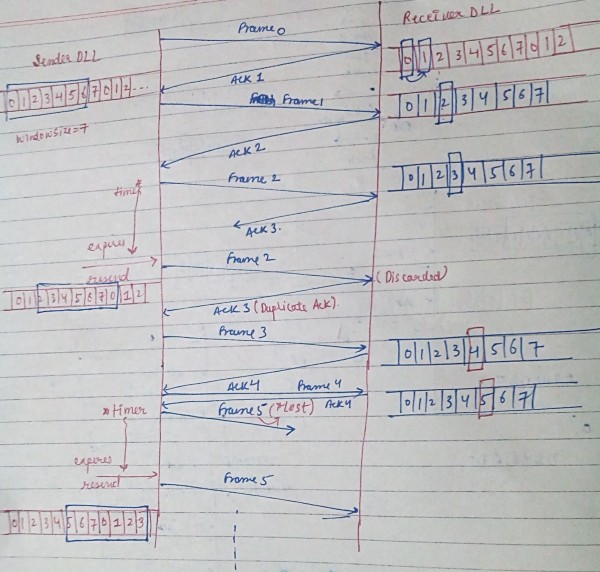 Receiver DLL
Frame 0
Sender DLL
0 1 2 3 4 5 6 7 0 1 2
Ack 1
0 1 2 3 4 5 6 7 0 1 2 ...
Frame 1
0 1 2 3 4 5 6 7
Window size = 7
Ack 2
Frame 2
0 1 2 3 4 5 6 7
timer
Ack 3.
expires
Frame 2
resend
(Discarded)
0 1 2 3 4 5 6 7 0 1 2
Ack 3 (Duplicate Ack).
Frame 3
0 1 2 3 4 5 6 7
Ack 4
Frame 4
Ack 4
0 1 2 3 4 5 6 7
timer
Frame 5 (lost)
expires
resend
Frame 5
0 1 2 3 4 5 6 7 0 1 2 3